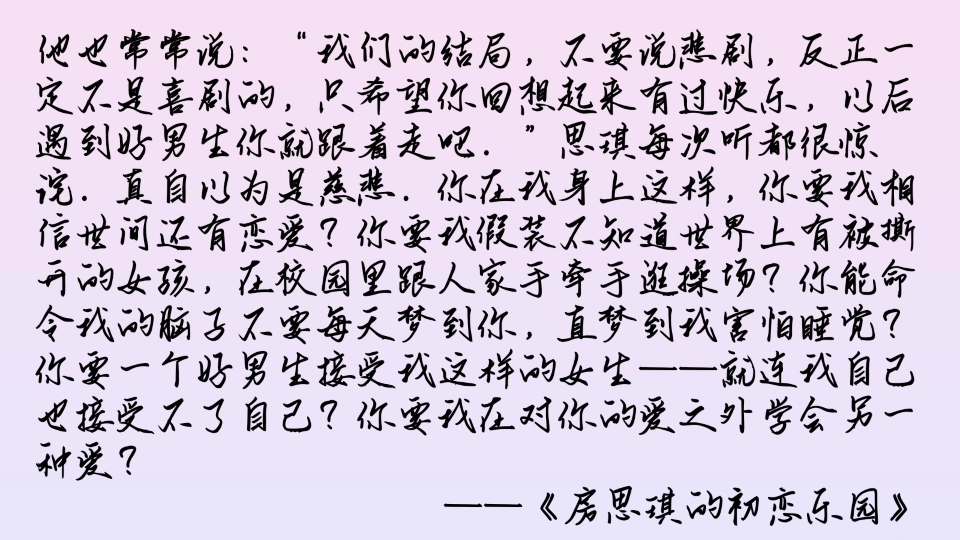 他也常常说：“我们的结局，不要说悲剧，反正一
定不是喜剧的，只希望你回想起来有过快乐，以后
遇到好男生你就跟着走吧．”思琪每次听都很惊
诧．真自以为是慈悲．你在我身上这样，你要我相
信世间还有恋爱？你要我假装不知道世界上有被撕
开的女孩，在校园里跟人家手牵手逛操场？你能命
令我的脑子不要每天梦到你，直梦到我害怕睡觉？
你要一个好男生接受我这样的女生——就连我自己
也接受不了自己？你要我在对你的爱之外学会另一
种爱？
——《房思琪的初恋乐园》